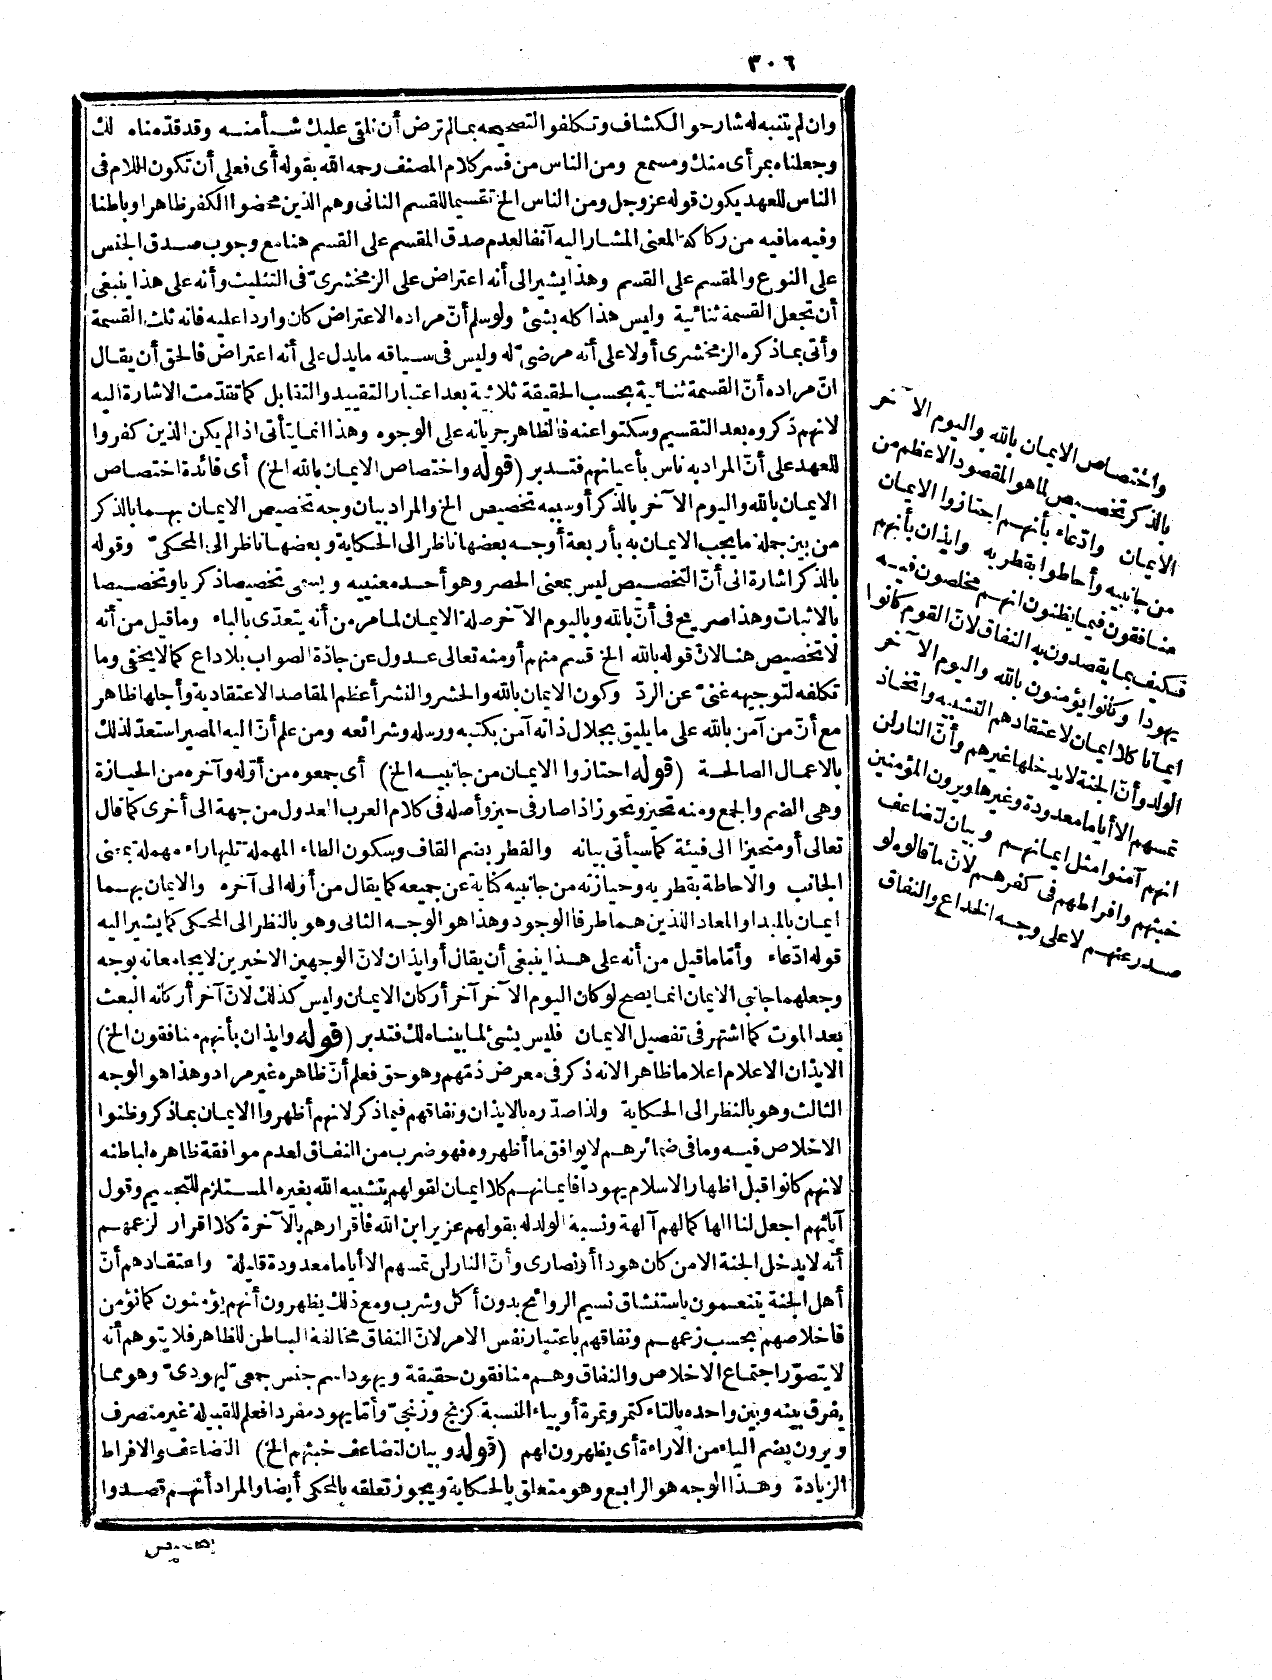 ٣٠٦
وان لم يتنبه له شارحو الكشاف وتكلفو التصحيحه بمالم ترض أن نلقى عليك شيأ منه وقد قدّمناه لك
وجعلناه بمرأى منك ومسمع ومن الناس من فسر كلام المصنف رحمه الله بقوله أى فعلى أن تكون اللام فى
الناس للعهد يكون قوله عز وجل ومن الناس الخ تقسيما للقسم الثانى وهم الذين محضوا الكفر ظاهرا وباطنا
وفيه ما فيه من ركاكة المعنى المشار اليه آنفا لعدم صدق المقسم على القسم هنا مع وجوب صدق الجنس
على النوع والمقسم على القسم وهذا يشير الى أنه اعتراض على الزمخشرىّ فى التثليث وأنه على هذا ينبغى
أن تجعل القسمة ثنائية وليس هذا كله بشئ ولو سلم أنّ مراده الاعتراض كان واردا عليه فانه ثلث القسمة
وأتى بما ذكره الزمخشرى أولا على أنه مرضىّ له وليس فى سياقه ما يدل على أنه اعتراض فالحق أن يقال
انّ مراده أنّ القسمة ثنائية بحسب الحقيقة ثلاثية بعد اعتبار التقييد والتقابل كما تقدّمت الاشارة اليه
لانهم ذكروه بعد التقسيم وسكتوا عنه فالظاهر جريانه على الوجوه وهذا انما يتأتى اذا لم يكن الذين كفروا
للعهد على أنّ المراد به ناس بأعيانهم فتدبر (قوله واختصاص الايمان بالله الخ) أى فائدة اختصاص
الايمان بالله واليوم الآخر بالذكر أو سببه تخصيص الخ والمراد بيان وجه تخصيص الايمان بهما بالذكر
من بين جملة ما يجب الايمان به بأربعة أوجه بعضها ناظر الى الحكاية وبعضها ناظر الى المحكىّ وقوله
بالذكر اشارة الى أنّ التخصيص ليس بمعنى الحصر وهو أحد معنييه ويسمى تخصيصا ذكريا وتخصيصا
بالاثبات وهذا صريح فى أنّ بالله وباليوم الآخر صلة الايمان لما مر من أنه يتعدّى بالباء وما قيل من أنه
لا تخصيص هنا لانّ قوله بالله الخ قسم منهم أو منه تعالى عدول عن جادّة الصواب بلا داع كما لا يخفى وما
تكلفه لتوجيهه غنىّ عن الردّ وكون الايمان بالله والحشر والنشر أعظم المقاصد الاعتقادية وأجلها ظاهر
مع أنّ من آمن بالله على ما يليق بجلال ذاته آمن بكتبه ورسله وشرائعه ومن علم أنّ اليه المصير استعدّ لذلك
بالاعمال الصالحة (قوله احتازوا الايمان من جانبيه الخ) أى جمعوه من أوّله وآخره من الحيازة
وهى الضم والجمع ومنه تحيز وتحوز اذا صار فى حيز وأصله فى كلام العرب العدول من جهة الى أخرى كما قال
تعالى أو متحيزا الى فئة كما سيأتى بيانه والقطر بضم القاف وسكون الطاء المهملة تليها راء مهملة بمعنى
الجانب والاحاطة بقطريه وحيازته من جانبيه كناية عن جميعه كما يقال من أوّله الى آخره والايمان بهما
ايمان بالمبدا والمعاد اللذين هما طرفا الوجود وهذا هو الوجه الثانى وهو بالنظر الى المحكى كما يشير اليه
قوله ادّعاء وأمّا ما قيل من أنه على هذا ينبغى أن يقال أو ايذان لانّ الوجهين الاخيرين لا يجامعانه بوجه
وجعلهما جانبى الايمان انما يصح لو كان اليوم الآخر آخر أركان الايمان وليس كذلك لانّ آخر أركانه البعث
بعد الموت كما اشتهر فى تفصيل الايمان فليس بشئ لما بيناه لك فتدبر (قوله وايذان بأنهم منافقون الخ)
الايذان الاعلام اعلاما ظاهرا لانه ذكر فى معرض ذمّهم وهو حق فعلم أنّ ظاهره غير مراد وهذا هو الوجه
الثالث وهو بالنظر الى الحكاية ولذا صدّره بالايذان ونفاقهم فيما ذكر لانهم أظهروا الايمان بما ذكر وظنوا
الاخلاص فيه وما فى ضمائرهم لا يوافق ما أظهروه فهو ضرب من النفاق لعدم موافقة ظاهره لباطنه
لانهم كانوا قبل اظهار الاسلام يهودا فايمانهم كلا ايمان لقولهم بتشبيه الله بغيره المستلزم للتجسيم وقول
آبائهم اجعل لنا الها كما لهم آلهة ونسبة الولد له بقولهم عزير ابن الله فاقرارهم بالآخرة كلا اقرار لزعمهم
أنه لا يدخل الجنة الا من كان هودا أو نصارى وأنّ النار لن تمسهم الا أياما معدودة قليلة واعتقادهم أنّ
أهل الجنة يتنعمون باستنشاق نسيم الروائح بدون أكل وشرب ومع ذلك يظهرون أنهم يؤمنون كما نؤمن
فاخلاصهم بحسب زعمهم ونفاقهم باعتبار نفس الامر لانّ النفاق مخالفة الباطن للظاهر فلا يتوهم أنه
لا يتصوّر اجتماع الاخلاص والنفاق وهم منافقون حقيقة ويهود اسم جنس جمعىّ ليهودىّ وهو مما
يفرق بينه وبين واحده بالتاء كتمر وتمرة أو بياء النسبة كزنج وزنجىّ وأمّا يهود مفردا فعلم للقبيلة غير منصرف
ويرون بضم الياء من الاراءة أى يظهرون لهم (قوله وبيان لتضاعف خبثهم الخ) التضاعف والافراط
الزيادة وهذا الوجه هو الرابع وهو متعلق بالحكاية ويجوز تعلقه بالمحكى أيضا والمراد أنهم قصدوا
واختصاص الايمان بالله واليوم الآخر
بالذكر تخصيص لما هو المقصود الاعظم من
الايمان وادّعاء بأنهم احتازوا الايمان
من جانبيه وأحاطوا بقطريه وايذان بأنهم
منافقون فيما يظنون انهم مخلصون فيه
فكيف بما يقصدون به النفاق لانّ القوم كانوا
يهودا وكانوا يؤمنون بالله واليوم الآخر
ايمانا كلا ايمان لاعتقادهم التشبيه واتخاذ
الولد وأنّ الجنة لا يدخلها غيرهم وأنّ النار لن
تمسهم الا أياما معدودة وغيرها ويرون المؤمنين
انهم آمنوا مثل ايمانهم وبيان لتضاعف
خبثهم وافراطهم فى كفرهم لانّ ما قالوه لو
صدر عنهم لا على وجه الخداع والنفاق